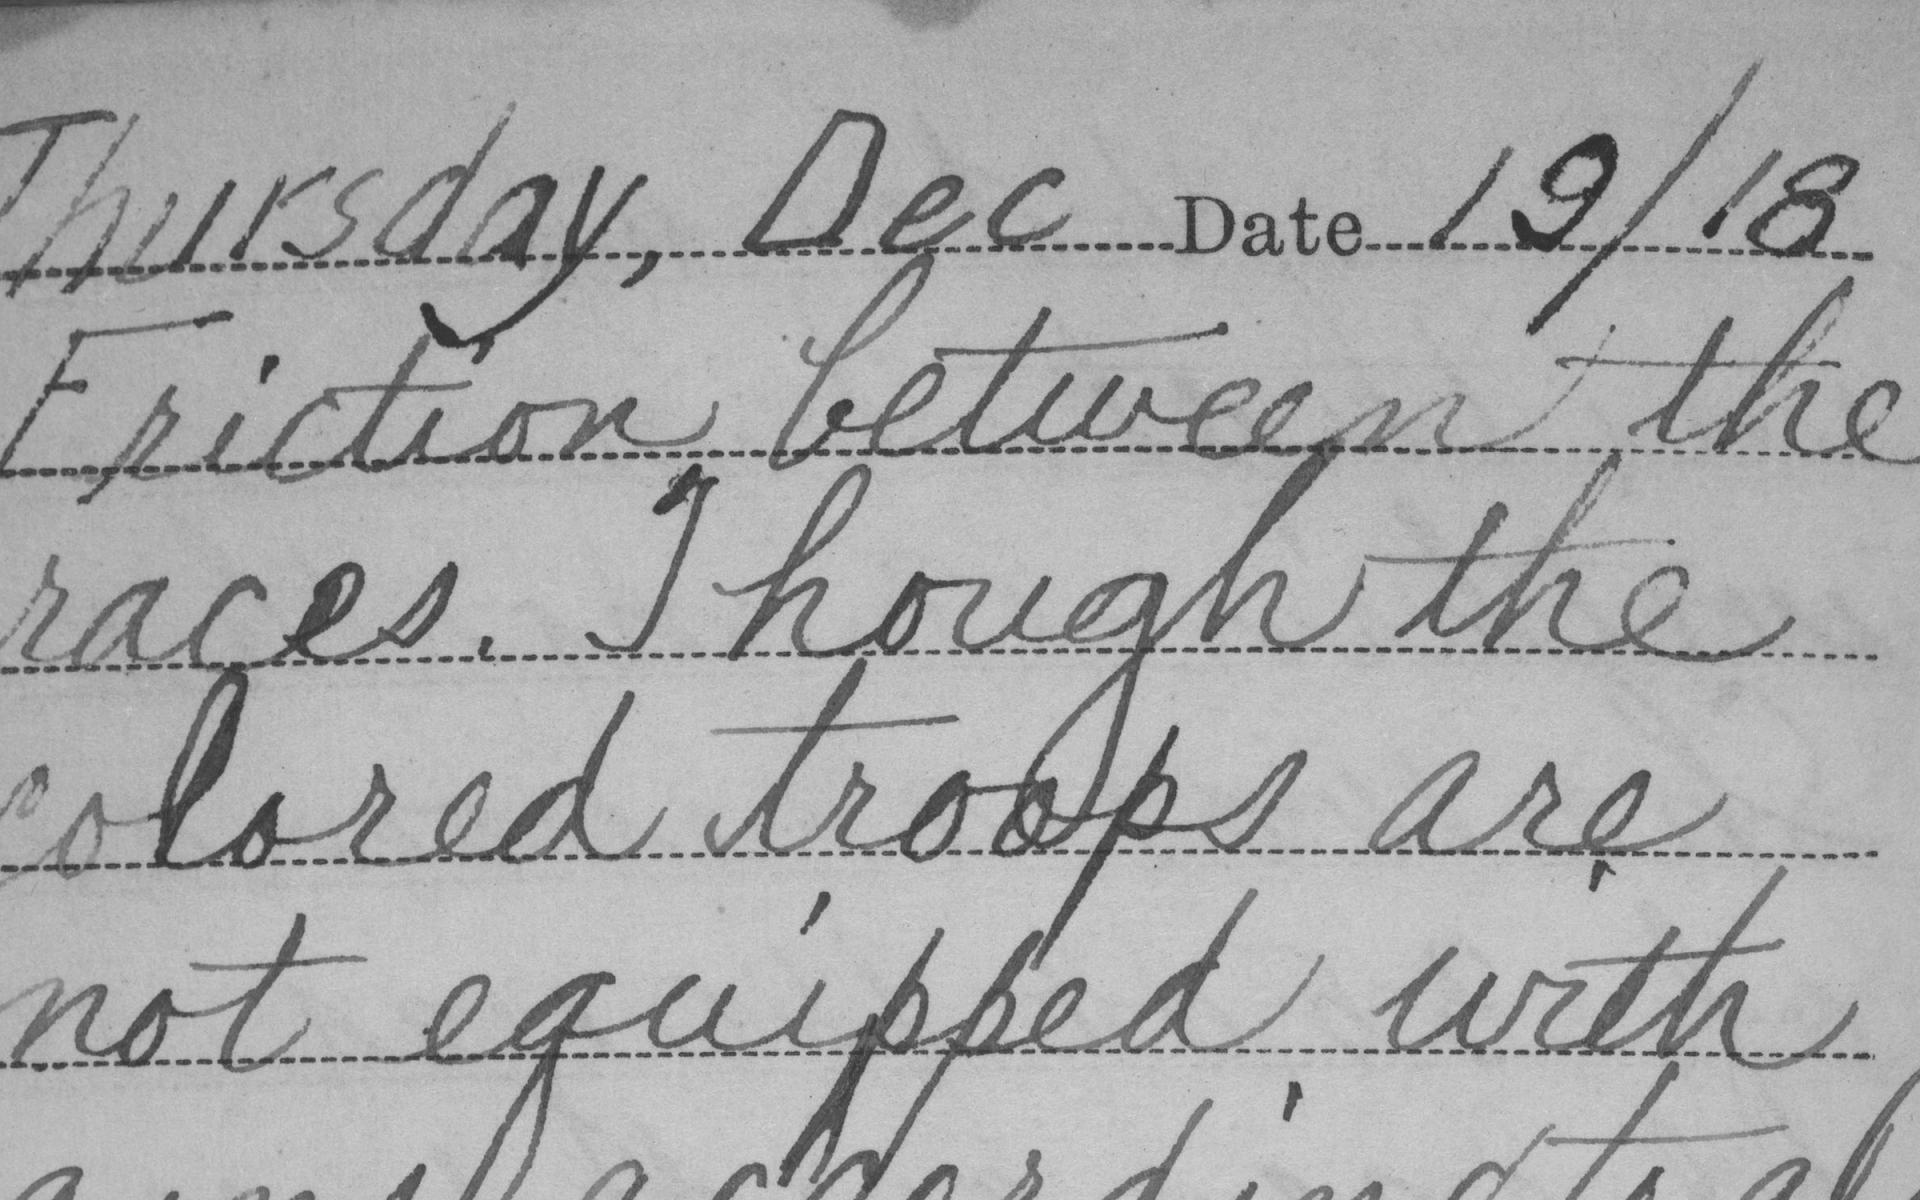 Thursday, Dec Date 19/18
Friction between the
races. Though the
colored troops are
not equipped with
according to